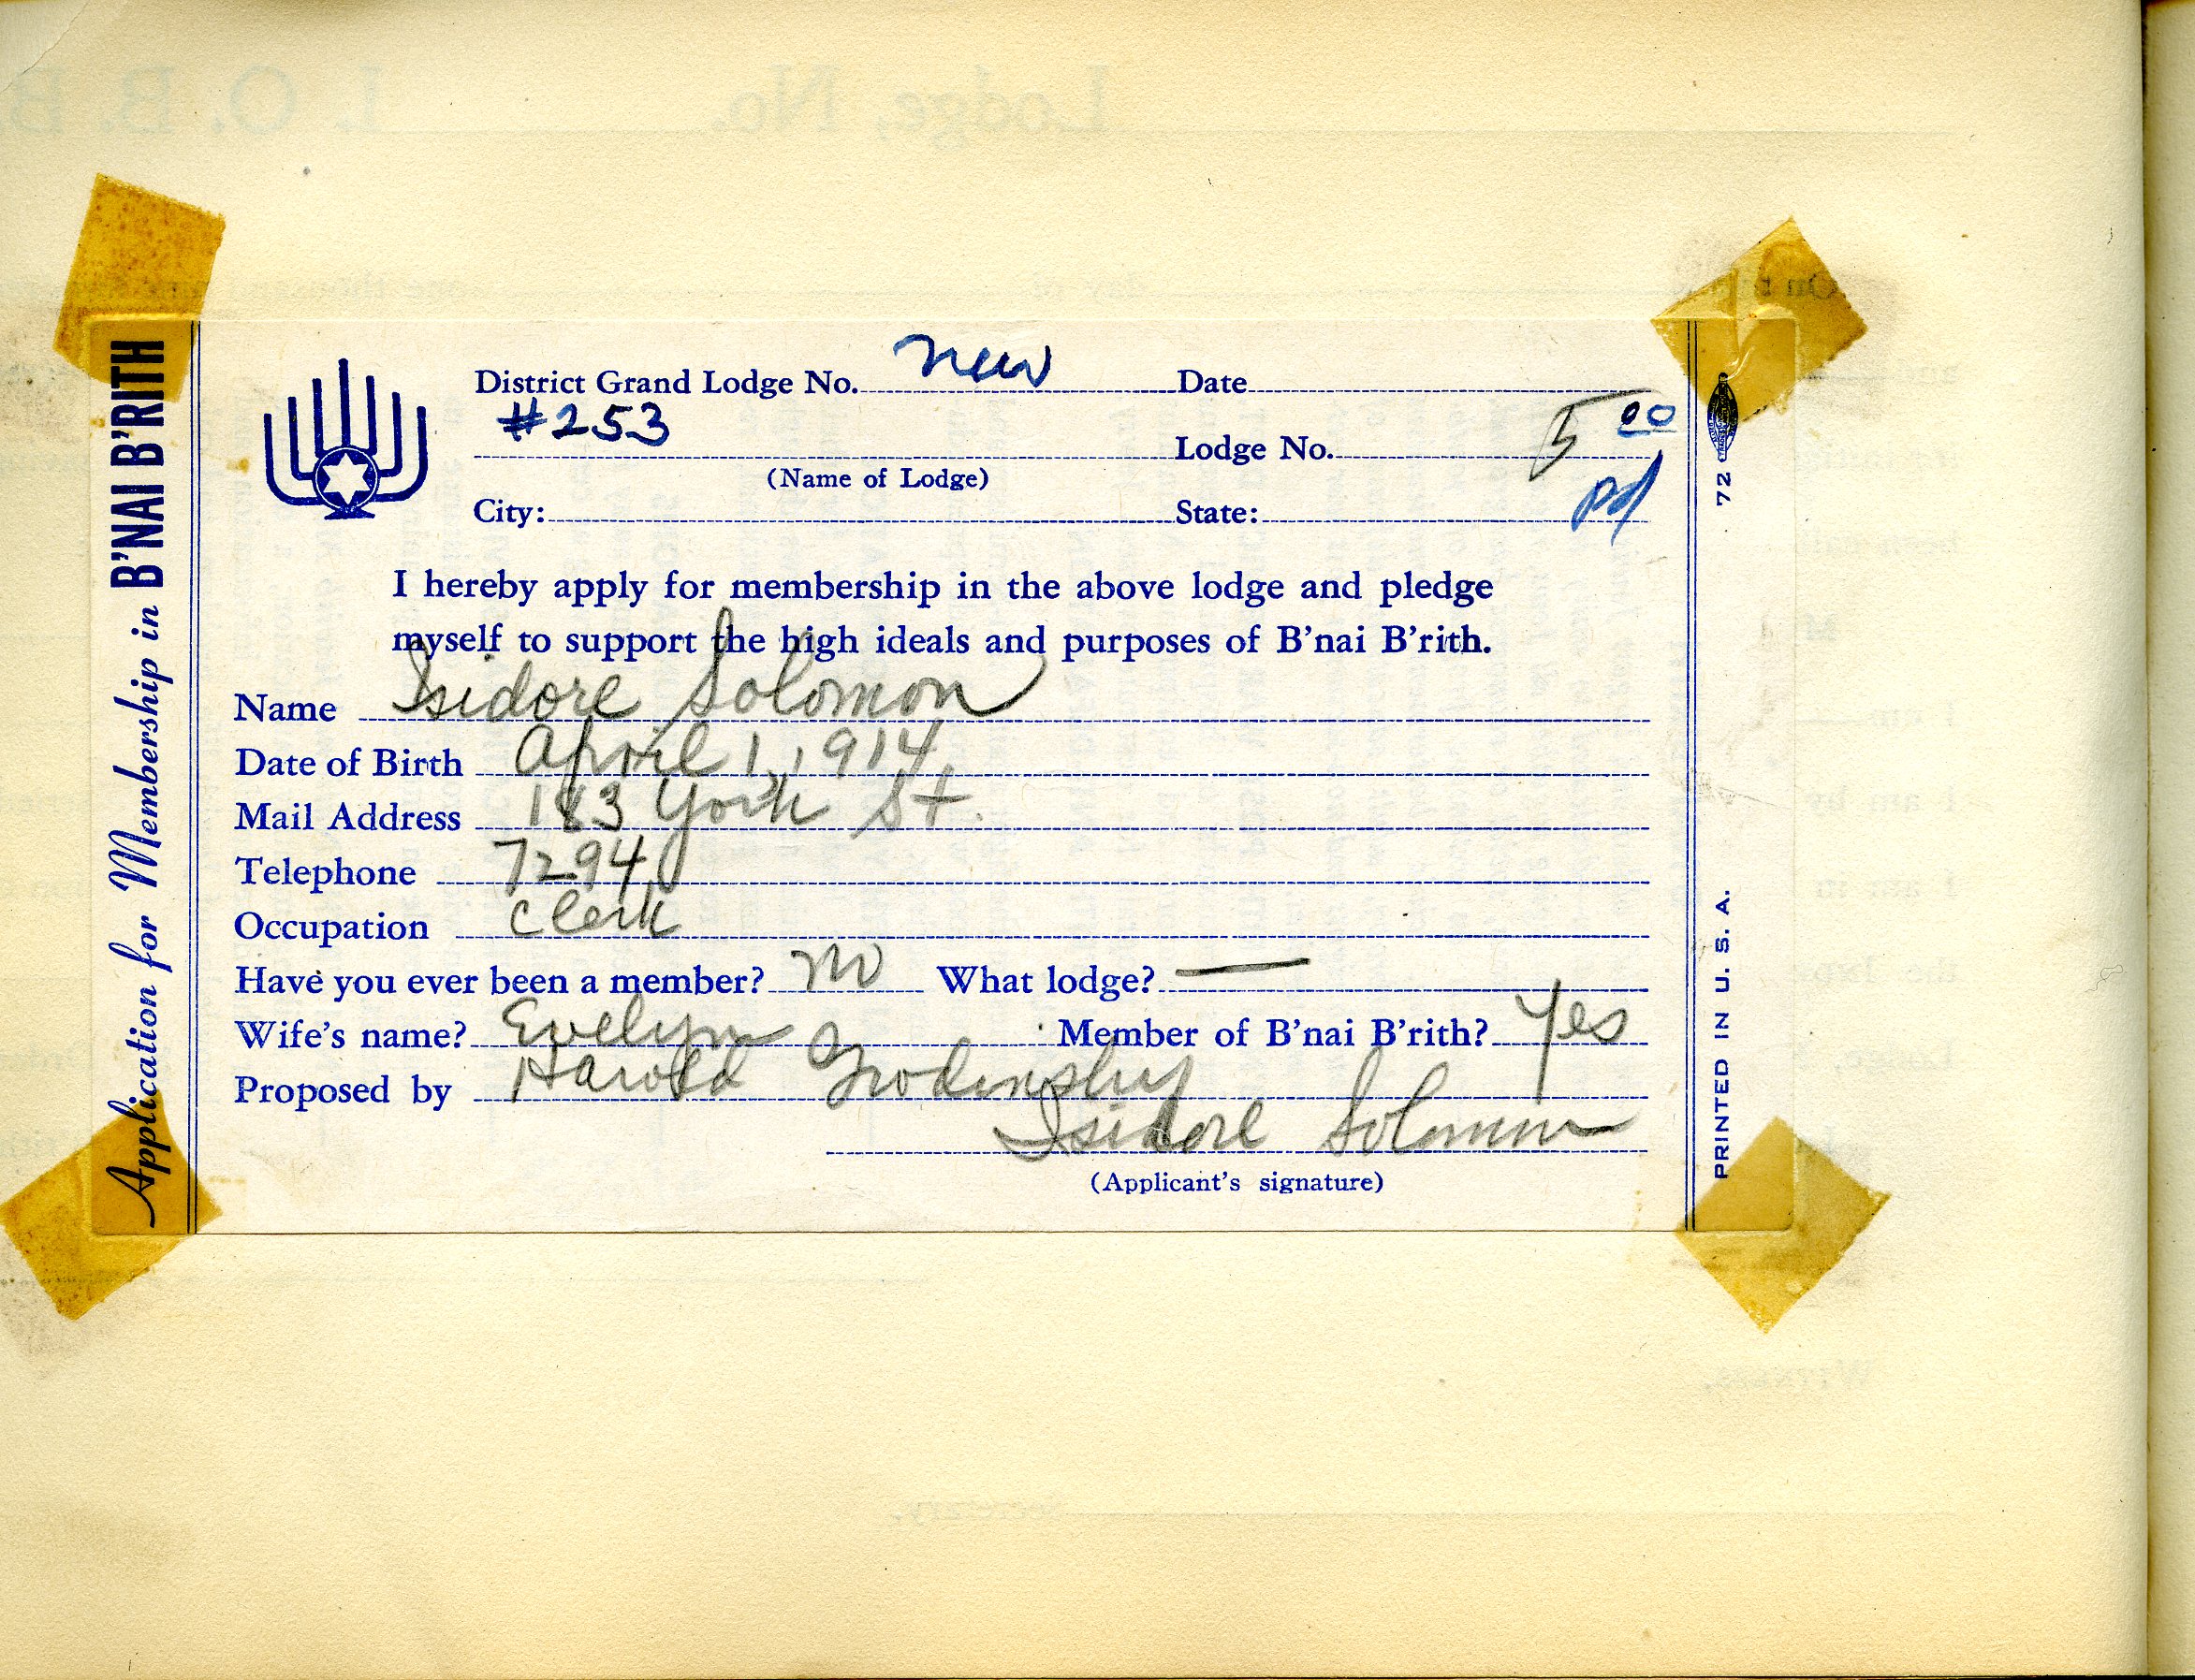 Lodge, No. I. O. B. B.
Application for Membership in B'NAI B'RITH
District Grand Lodge No. new Date
#253
Lodge No. 5 00
(Name of Lodge)
pd
City: State:
I hereby apply for membership in the above lodge and pledge
myself to support the high ideals and purposes of B'nai B'rith.
Name Isidore Solomon
Date of Birth April 1, 1914
Mail Address 183 York St.
Telephone 7294
Occupation Clerk
Have you ever been a member? no What lodge? —
Wife's name? Evelyn Member of B'nai B'rith? Yes
Proposed by Harold
Isidore Solomon
(Applicant's signature)
72
PRINTED IN U. S. A.
Witness.
Secretary.